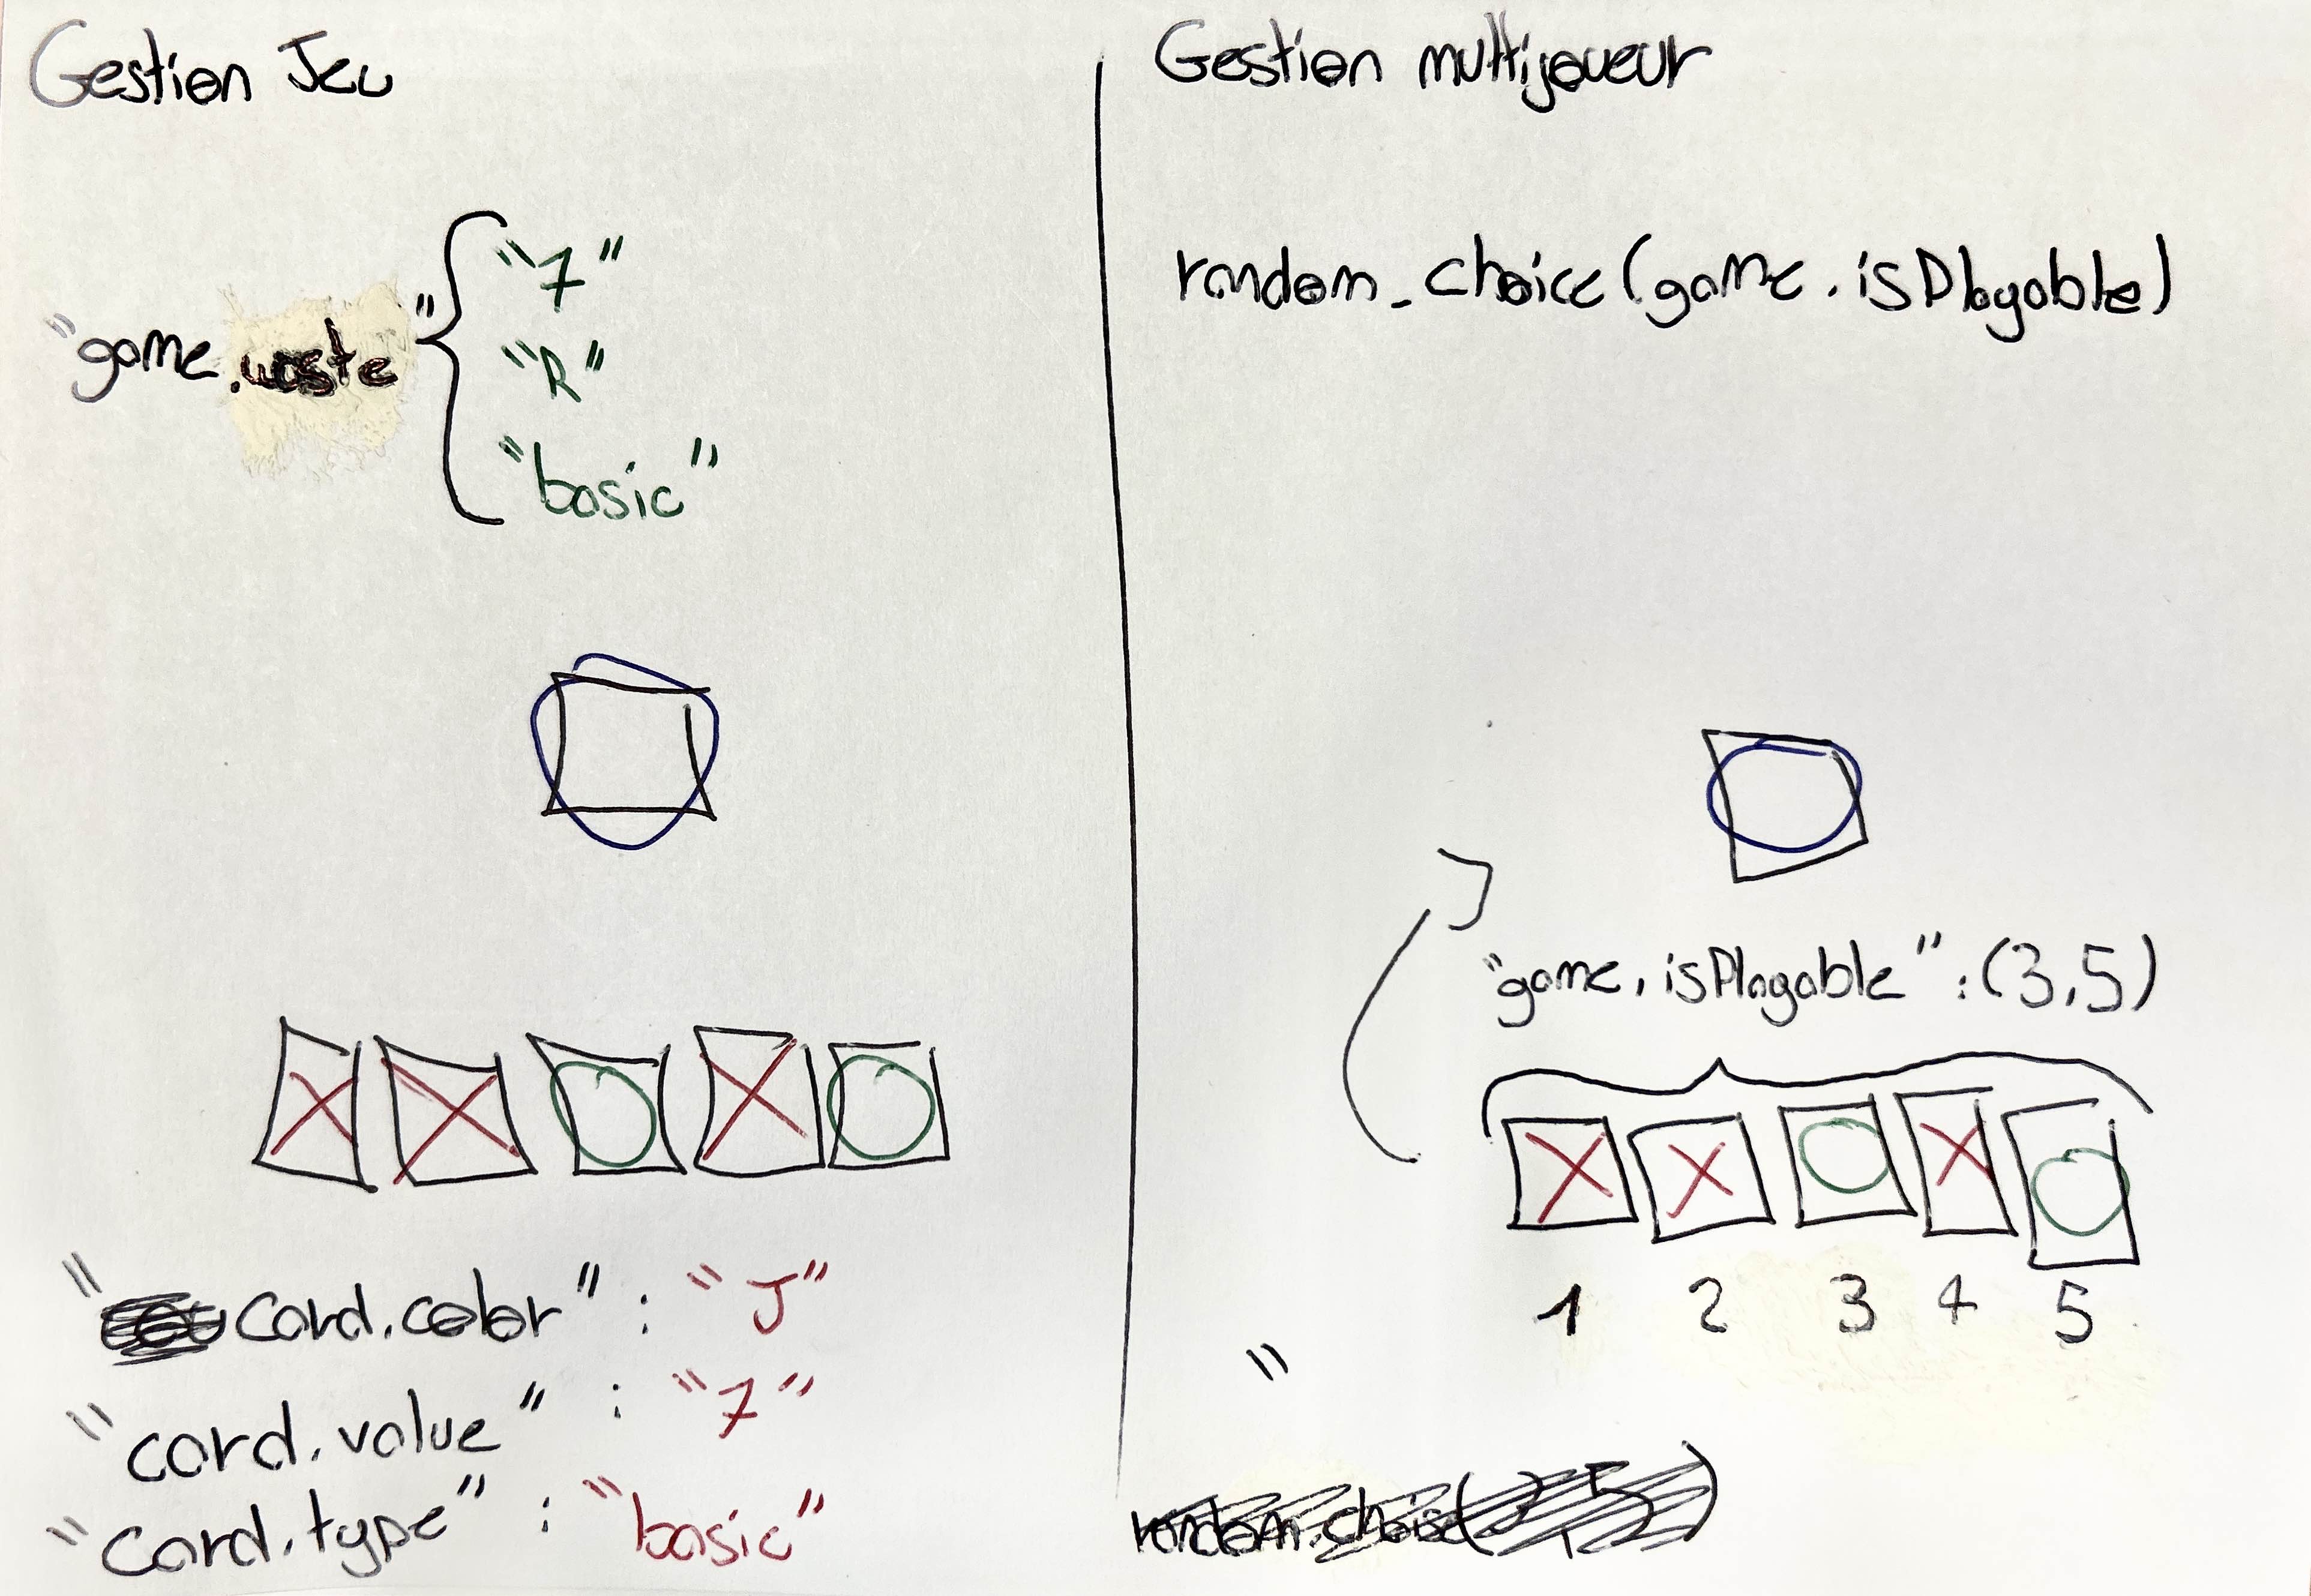 Gestion Jeu
"game.waste"
"7"
"R"
"basic"
"card.color" : "J"
"card.value" : "7"
"card.type" : "basic"
Gestion multijoueur
random_choice(game.isPlayable)
"game.isPlayable" : (3,5)
1 2 3 4 5
"